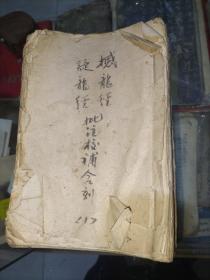 撼龍經
疑龍經 批注校補合刻
（1）